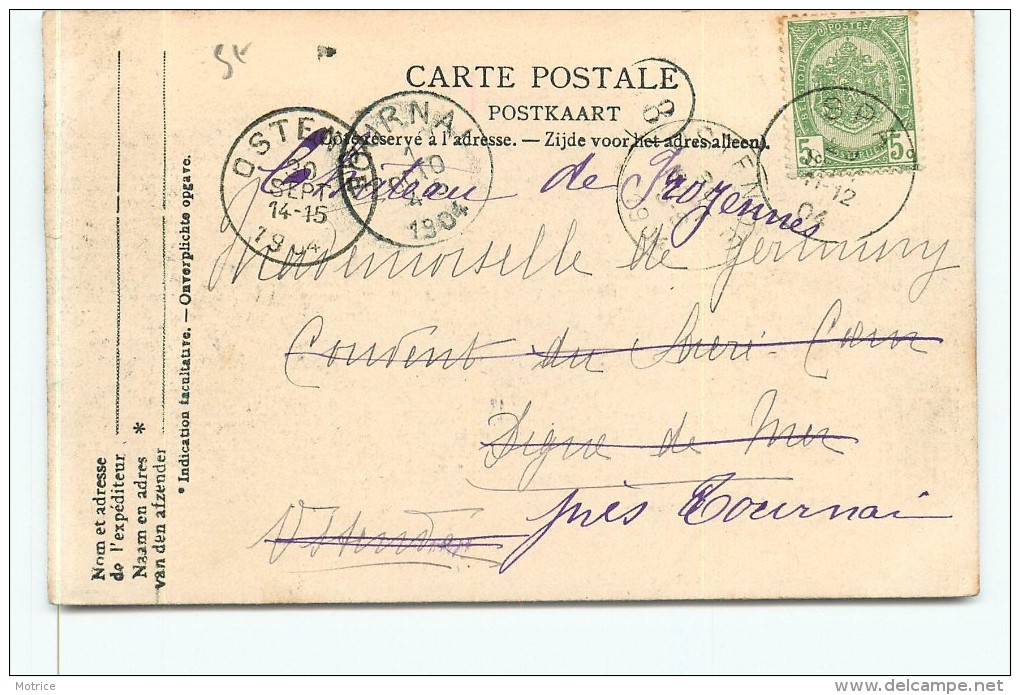 CARTE POSTALE
POSTKAART
(Côté réservé à l'adresse. — Zijde voor het adres alleen).
POSTES
BELGIQUE
BELGIË
5c 5c
SPA
11-12
04
OSTENDE
SEPT
14-15
1904
TOURNAI
1904
8
Château de Froyennes
Mademoiselle de Germiny
Couvent du Sacré-Cœur
Digue de Mer
près Tournai
Ostende
Nom et adresse
de l'expéditeur
Naam en adres *
van den afzender
* Indication facultative. — Onverplichte opgave.
Motrice
www.delcampe.net